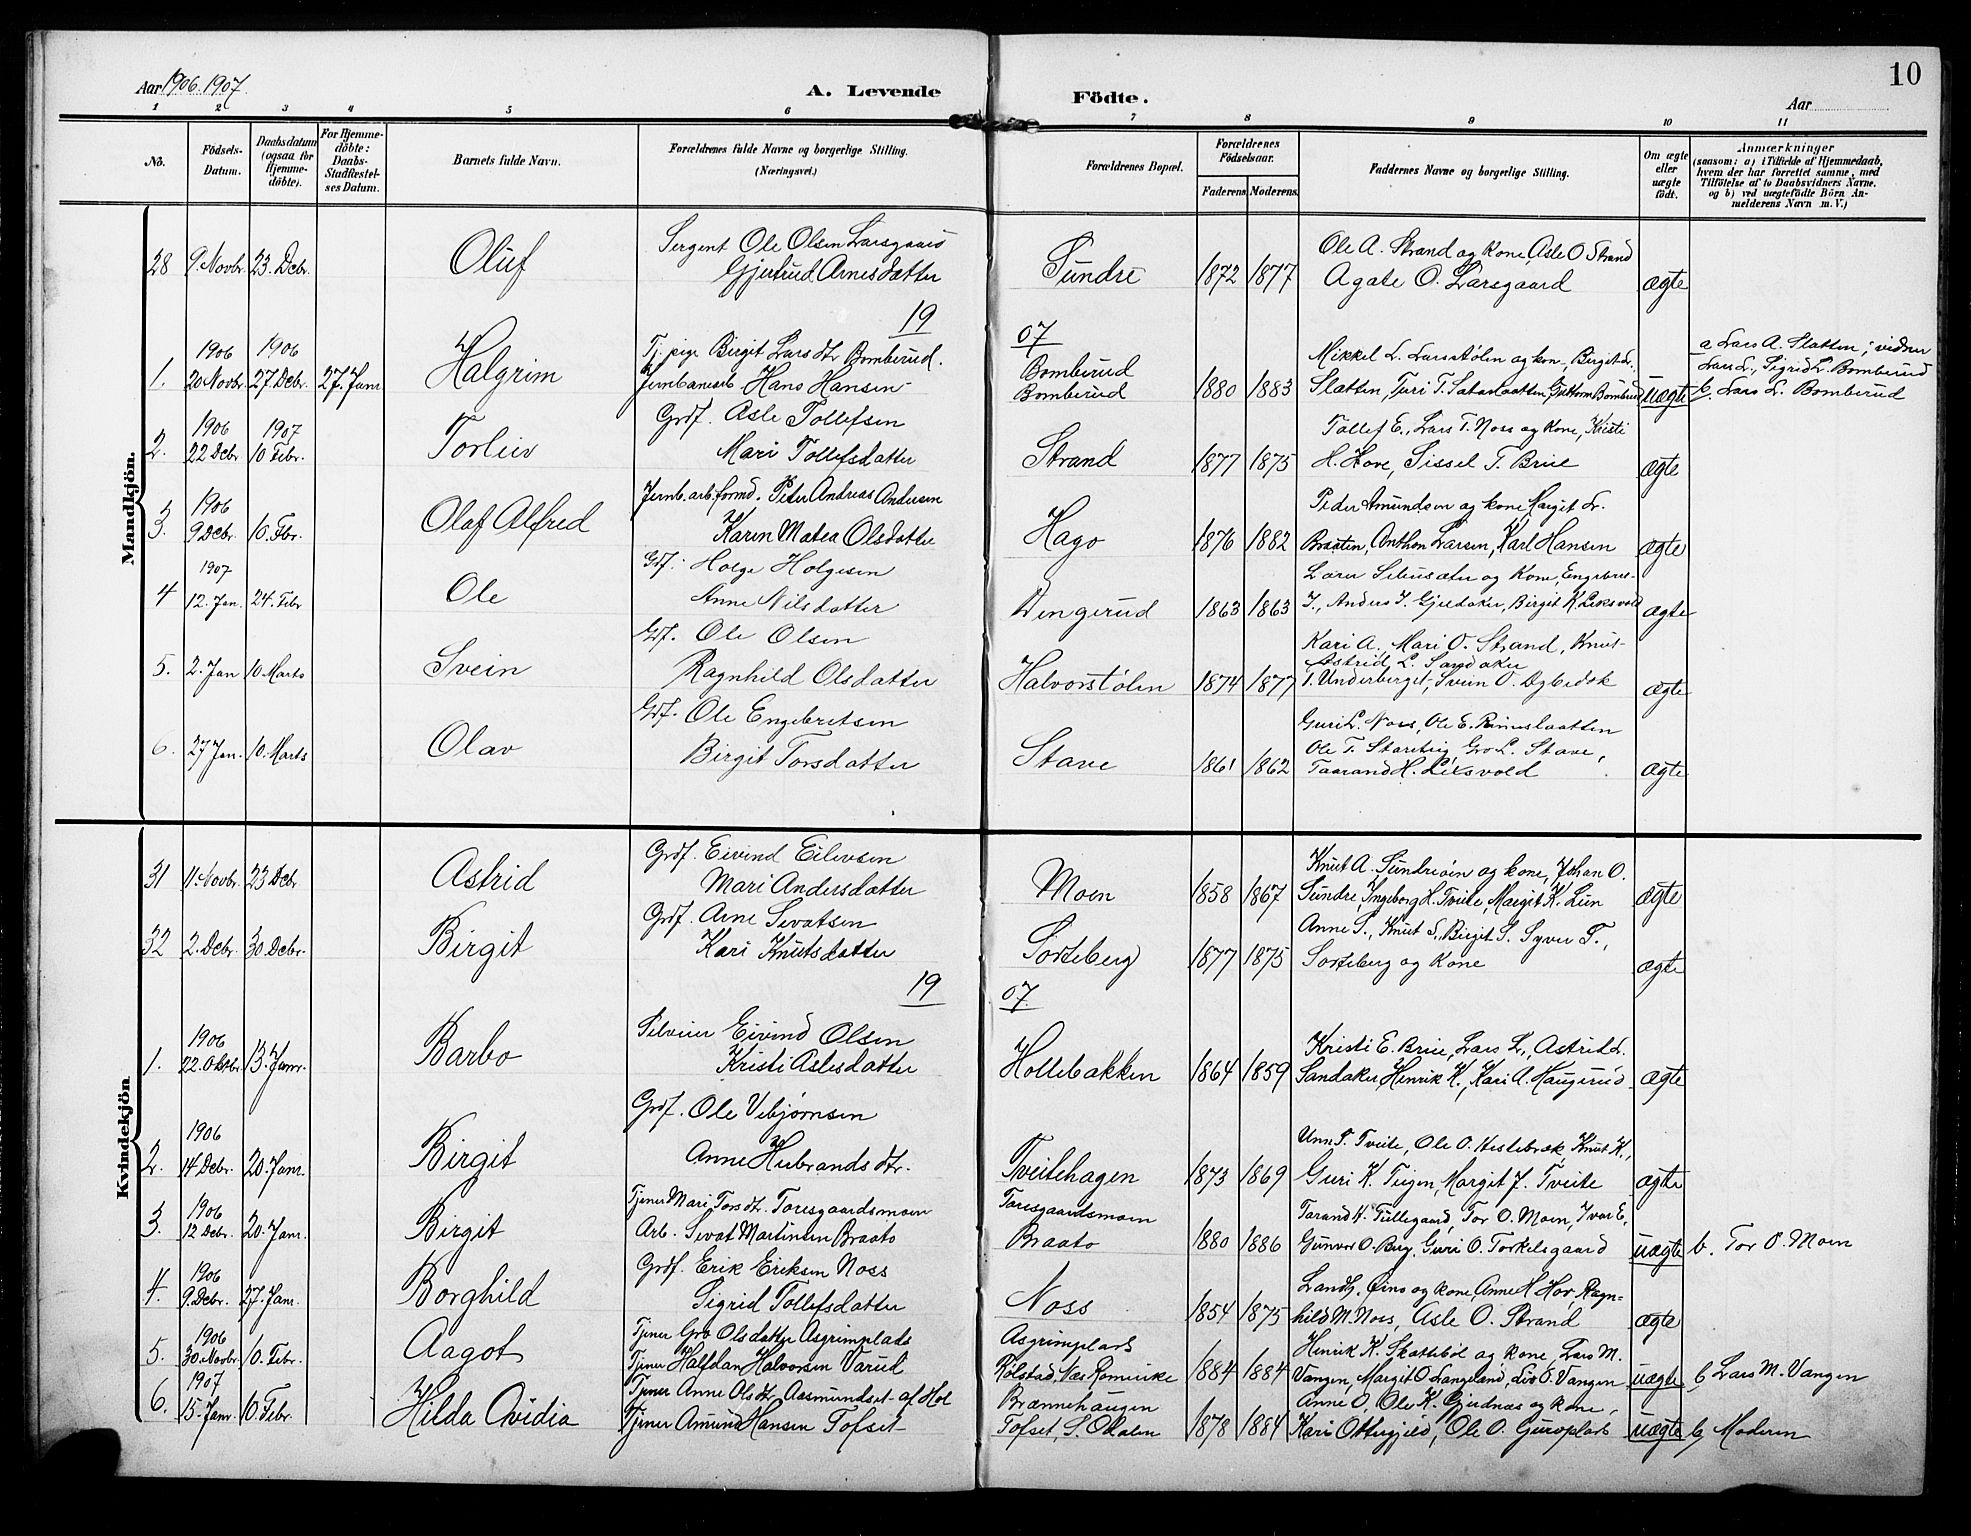 Aar 1906. 1907.
A. Levende Födte.
Aar
10
1 2 3 4 5 6 7 8 9 10 11
No.
Födsels-Datum.
Daabsdatum (ogsaa for Hjemme-döbte).
For Hjemme-döbte: Daabs-Stadfæstel-ses Datum.
Barnets fulde Navn.
Forældrenes fulde Navne og borgerlige Stilling. (Næringsvei.)
Forældrenes Bopæl.
Forældrenes Födselsaar.
Faderens. Moderens.
Faddernes Navne og borgerlige Stilling.
Om ægte eller uægte födt.
Anmærkninger (saasom: a) i Tilfælde af Hjemmedaab, hvem der har forrettet samme, med Tilföielse af to Daabsvidners Navne, og b) ved uægtefödte Börn An-melderens Navn m. V.)
Mandkjön.
28 9 Novbr. 23. Debr. Oluf
Sergent Ole Olsen Larsgaard
Gjertrud Arnesdatter
Sundre 1872 1877
Ole A. Strand og kone, Asle O Strand
Agate O. Larsgaard ægte
19 07
1. 1906 20 Novbr. 1906 27 Debr. 27. Janr Halgrim
Tj. pige Birgit Larsdtr Bomberud.
Jernbanearb Hans Hansen
Bomberud
Bomberud 1880 1883
Mikkel L. Larsstølen og kon, Birgit L.
Slætten, Turi T. Guttorm Bomberud uægte
a Lars A. Slatten; vidner
Lars L., Sigrid L. Bomberud
b. Lars L. Bomberud
2. 1906 22 Debr 1907 10 Febr. Torleiv
Grdf. Asle Tollefsen
Mari Tollefsdatter
Strand 1877 1875
Tollef E., Lars T. Noss og kone, Kristi
H. Hove, Sissel T. Brue ægte
3. 1906 9 Debr. 10. Fbr. Olaf Alfred
Jernb. arb. formd. Peter Andreas Andersen
Karen Matea Olsdatter
Hago 1876 1882
Peder Amundsen og kone Margit L.
Braaten, Anthon Larsen, Karl Hansen ægte
4 1907 12. Jan. 24. Febr Ole
Gdf. Holge Holgesen
Anne Nilsdatter
Wengerud 1863 1863
Lærer og Kone,
J., Anders J. Gjeldaker, Birgit K. Leksvold ægte
5. 2. Jan 10 Marts Svein
Gdf. Ole Olsen
Ragnhild Olsdatter
Halvorstølen 1874 1877
Kari A. Mari O. Strand, Knut
Astrid L. Sandaker
T. Underberget, Svein O. ægte
6. 27 Jan. 10. Marts Olav
Gdf. Ole Engebretsen
Birgit Torsdatter
Stave 1861 1862
Guri L. Noss, Ole E.
Ole T. Gro L. Stave,
Taarand H. Leksvold ægte
Kvindekjön.
31 11. Novbr. 23 Debr Astrid
Grdf. Eivind Eilevsen
Mari Andersdatter
Moen 1858 1867
Knut A. Sundreøien og kone, Johan O.
Sundre, Ingeborg L. Tveite, Margit K. Lien ægte
32 2. Debr. 30 Debr. Birgit
Grdf. Arne Sevatsen
Kari Knutsdatter
Sorteberg 1877 1875
Anne S., Knut S., Birgit S. Syver T.,
Sorteberg og Kone ægte
19 07.
1. 1906 22. Oktbr. 13. Janr. Barbo
Selveier Eivind Olsen
Kristi Aslesdatter
Hollebakken 1864 1859
Kristi E. Brue, Lars L., Astrid L.
Sandaker, Henrik K., Kari A. Haugerud ægte
2. 1906 14 Debr. 20. Janr. Birgit
Grdf. Ole Vebjørnsen
Anne Hubrandsdtr.
Tveitehagen 1873 1869
Unn T. Tveite, Ole O. Hestebræk, Knut K.,
Guri K. Teigen, Margit J. Tveite ægte
3. 1906 12 Debr. 20. Janr. Birgit
Tjener Mari Torsdtr. Toresgaardsmoen
Arb. Sevat Martinsen Braato
Toresgaardsmoen
Braato 1880 1886
Tarand H. Tullegaard, Tor O. Moen, Ivar E.
Gunvor O. Berg, Guri O. Torkelsgaard uægte
b. Tor O. Moen
4. 1906 9. Debr. 27. Janr. Borghild
Grdf. Erik Eriksen Noss
Sigrid Tollefsdatter
Noss 1854 1875
Landh. Øino og kone, Anne H. Hov Ragn=
hild M. Noss, Asle O. Strand ægte
5. 1906 30. Novbr. 10. Febr. Aagot
Tjener Gro Olsdatter Asgrimplads
Tjener Halfdan Halvorsen Varud
Asgrimplads
Kølstad, Næs Romerike 1884 1884
Henrik K. Skattebøl og kone Lars M.
Vangen, Margit O. Langeland, Liv O. Vangen uægte
b, Lars M. Vangen
6. 1907 15. Janr. 10. Febr. Hilda Ovidia
Tjener Anne Olsdtr. Aasmundset af Hol
Tjener Amund Hansen Tofset
Brænnehaugen
Tofset, S. Odalen 1878 1884
Anne O, Ole K. Gjerdnæs og kone,
Kari Ottergjeld, Ole O. Guroplads uægte
b, Moderen